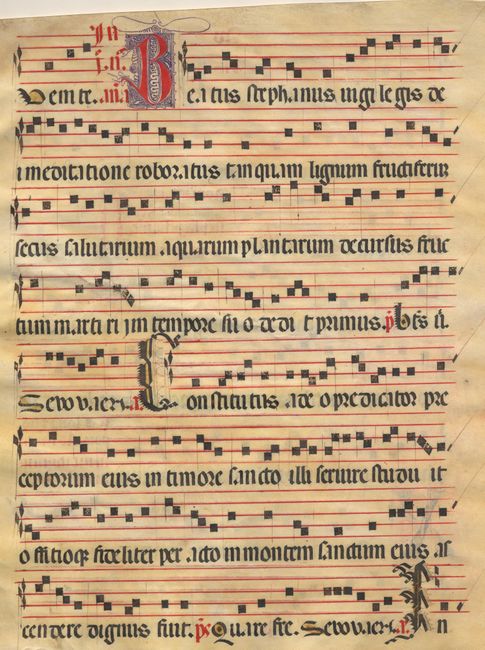 In
j. n.
Venite. añ. Beatus stephanus iugi legis de
i meditatione roboratus tanquam lignum fructiferum
secus salutarium aquarum plantarum decursus fruc
tum martirij in tempore suo dedit primus. ps Bt̄s ū.
Seuouaeu. a. Constitutus a deo predicator pre
ceptorum eius in timore sancto illi seruire studuit
officioqȝ fideliter peracto in montem sanctum eius as
cendere dignus fuit. ps Quare fre. Seuouaeu. a. In